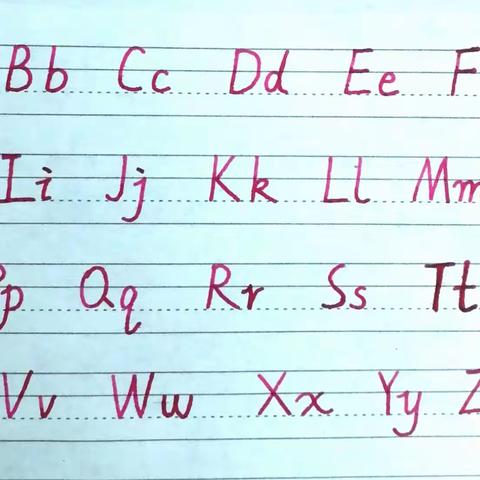 Bb Cc Dd Ee F
Ii Jj Kk Ll Mm
p Qq Rr Ss Tt
Vv Ww Xx Yy Z